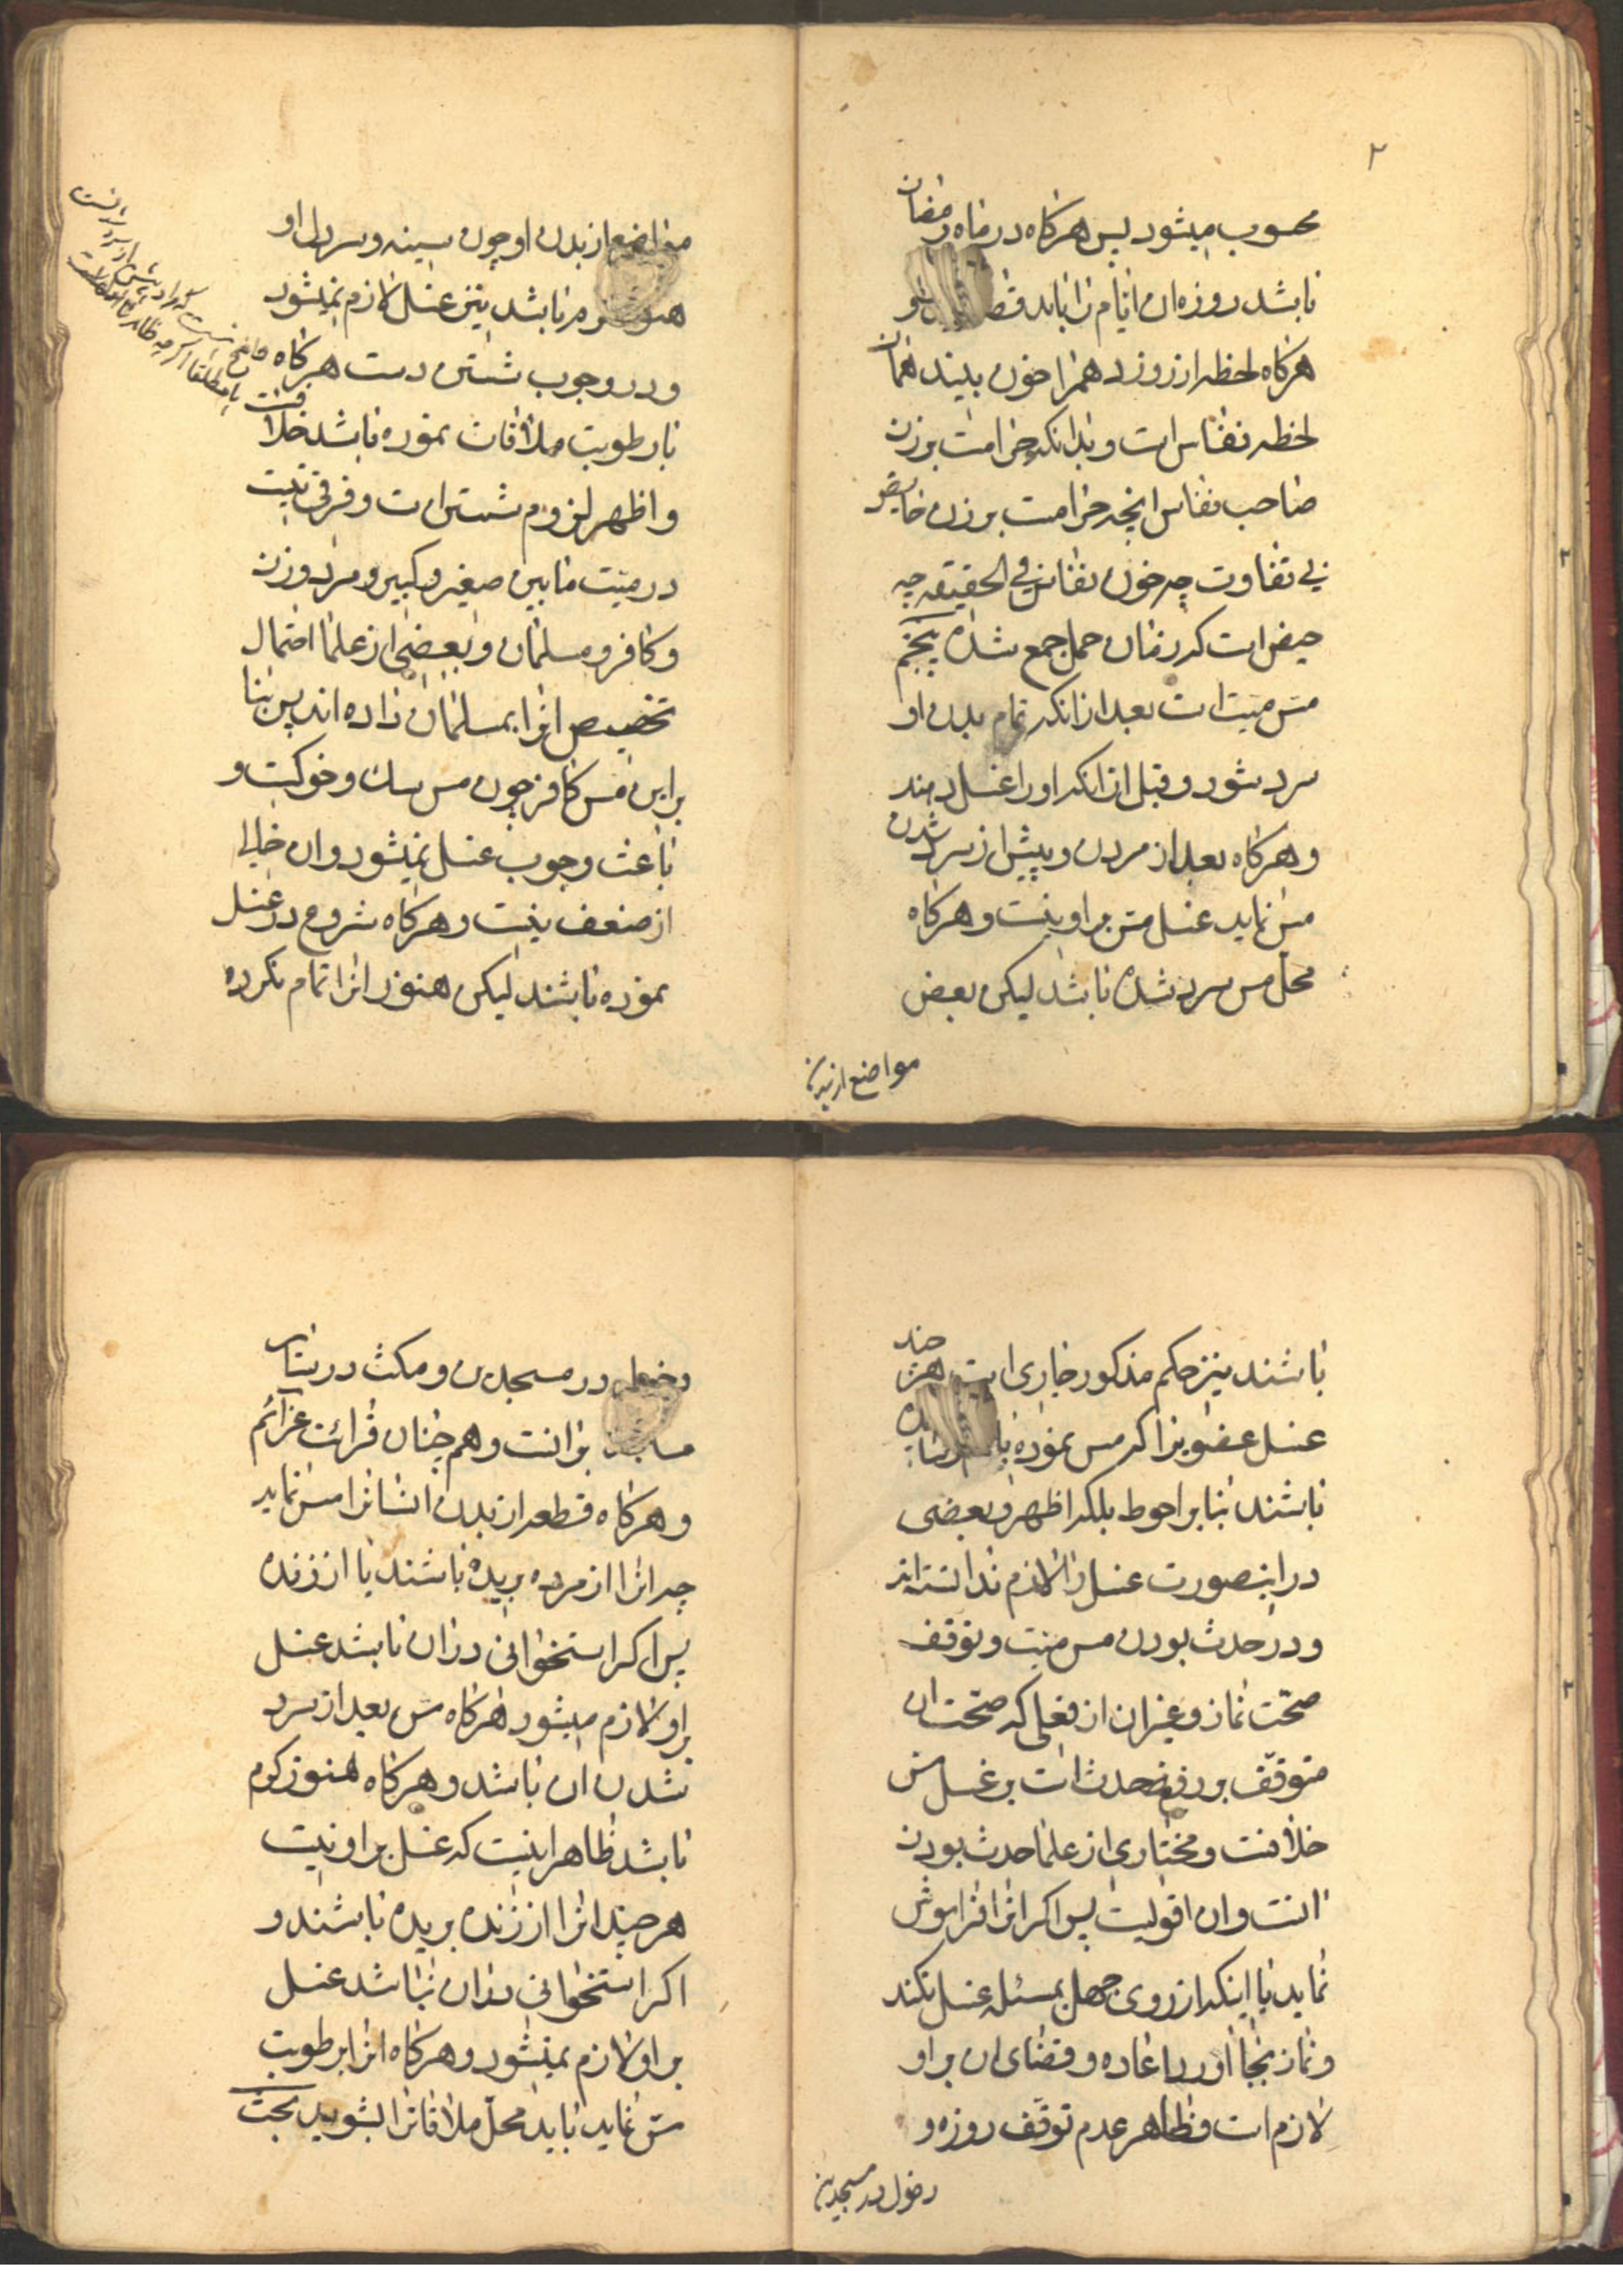 ۲
محسوب میشود پس هرکاه در ماه رمضان
باشد روزه ان ایام را باید قضا
هرکاه لحظه از روز دهم را خون بیند همان
لحظه نفاس است و بدانکه حرامست بر زن
صاحب نفاس انچه حرامست بر زن حایض
بی تفاوت چه خون نفاس فی الحقیقه چه
حیض است که در زمان حمل جمع شده پنجم
مس میت است بعد از انکه تمام بدن او
سرد شود و قبل از انکه او را غسل دهند
و هرکاه بعد از مردن و پیش از سرد شدن
مس نماید غسل مس بر او نیست و هرکاه
محل مس سرد شده باشد لیکن بعض
مواضع از بدن
مواضع از بدن او چون سینه و سر دل او
هنوز باشد نیز غسل لازم نمیشود
و در وجوب شستن دست هرکاه
با رطوبت ملاقات نموده باشد خلافست
و اظهر لزوم شستن است و فرقی نیست
در میت ما بین صغیر و کبیر و مرد و زن
و کافر و مسلمان و بعضی از علما احتمال
تخصیص انرا بمسلمانان داده اند پس بنا
بر این مس کافر چون مس سک و خوکست و
باعث وجوب غسل نمیشود و ان خالی
از ضعف نیست و هرکاه شروع در غسل
نموده باشند لیکن هنوز انرا تمام نکرده
باشند نیز حکم مذکور جاری است هر چند
غسل عضویرا که مس نموده
باشند بنا بر احوط بلکه اظهر و بعضی
در اینصورت غسل را لازم ندانسته اند
و در حدث بودن مس میت و توقف
صحت نماز و غیر ان از فعلی که صحت ان
متوقف بر رفع حدث است بر غسل مس
خلافست و مختار جمعی از علما حدث بودن
انست و ان اقویست پس اکر انرا فراموش
نماید یا اینکه از روی جهل بمسئله غسل نکند
و نماز بجا اورد اعاده و قضای ان بر او
لازم است و ظاهر عدم توقف روزه و
دخول در مسجدین
دخول در مسجدین و مکث در سایر
مساجد بر انست و هم چنان قرائت عزائم
و هرکاه قطعه از بدن انسانرا مس نماید
چه انرا از مرده بریده باشند یا از زنده
پس اکر استخوانی در ان باشد غسل
بر او لازم میشود هرکاه مس بعد از سرد
شدن ان باشد و هرکاه هنوز کرم
باشد ظاهر اینست که غسل بر او نیست
هر چند انرا از زنده بریده باشند و
اکر استخوانی در ان نباشد غسل
بر او لازم نمیشود و هرکاه انرا برطوبت
مس نماید باید محل ملاقاترا بشوید بحث